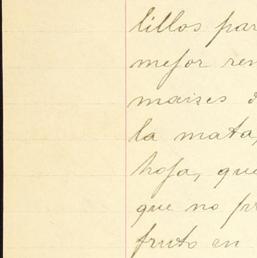 lillos par
mejor ren
maises d
la mata,
hoja, que
que no pr
fruto en